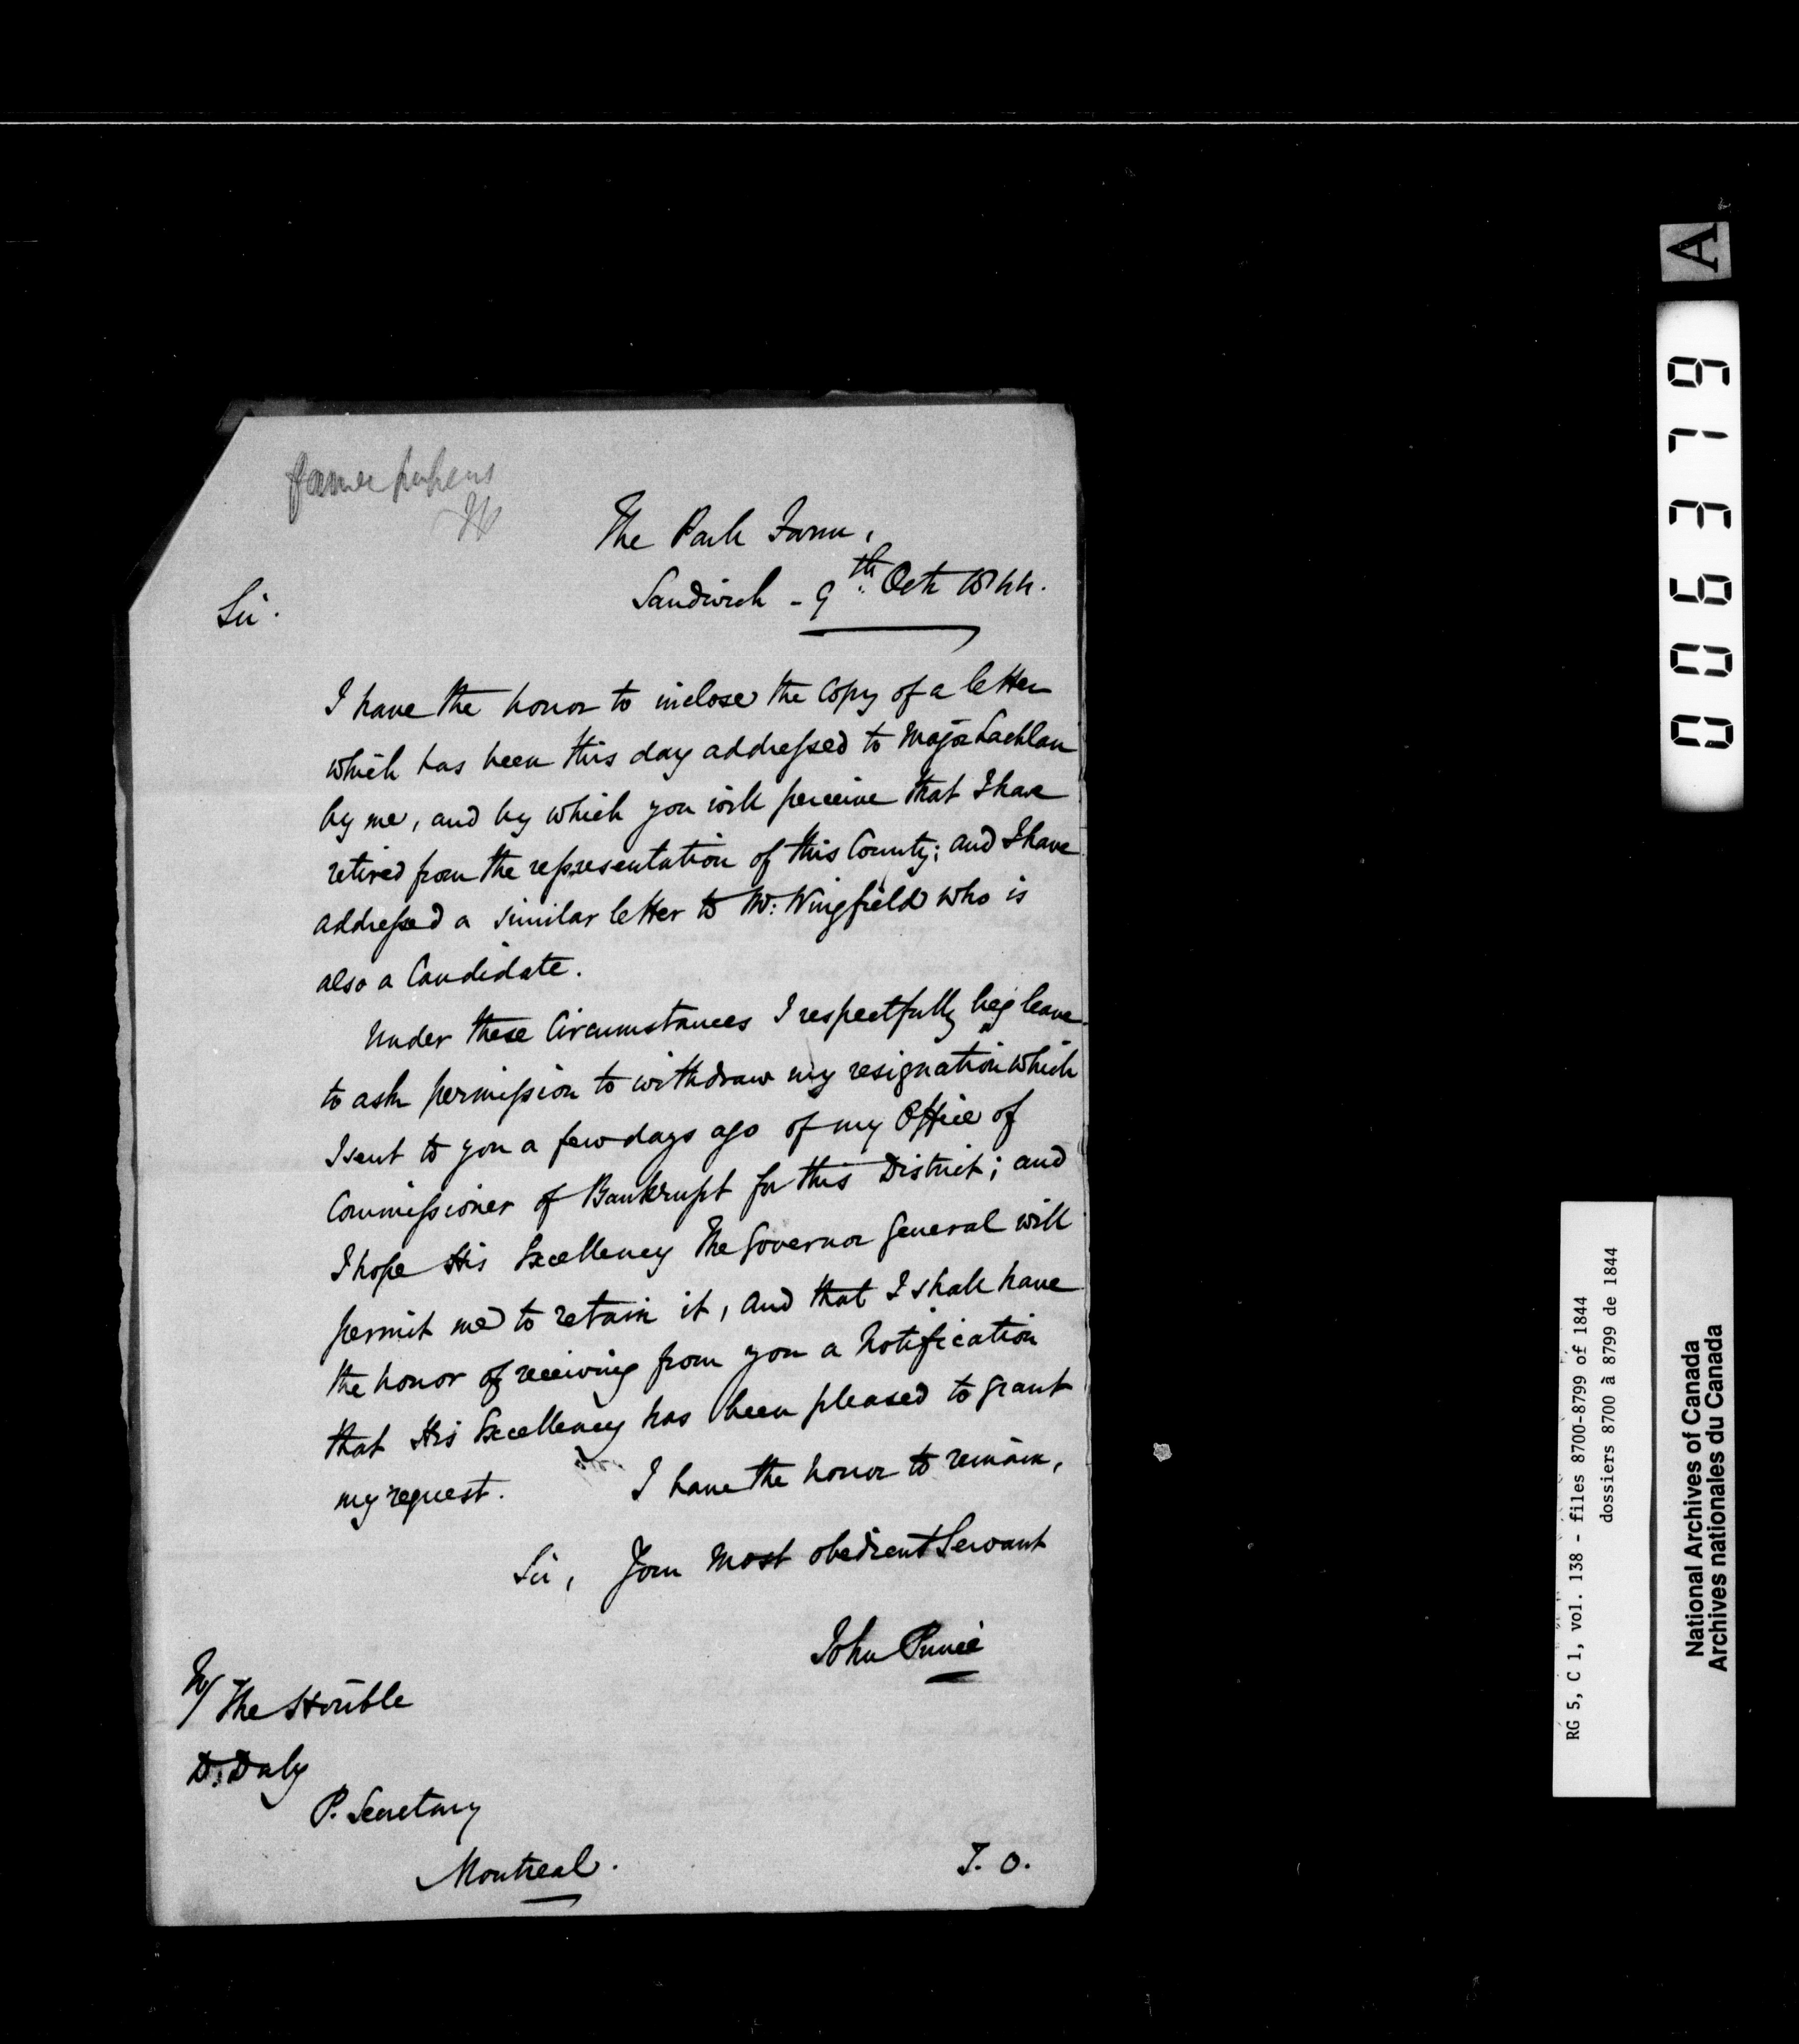 former papers
The Park Farm,
Sandwich - 9th Octr 1844.
Sir.
I have the honor to inclose the Copy of a letter
which has been this day addressed to Major Lachlan
by me, and by which you will perceive that I have
retired from the representation of this County; and I have
addressed a similar letter to Mr. Wingfield who is
also a Candidate.
Under these Circumstances I respectfully beg leave
to ask permission to withdraw my resignation which
I sent to you a few days ago of my Office of
Commissioner of Bankrupt for this District; and
I hope His Excellency The Governor General will
permit me to retain it, and that I shall have
the honor of receiving from you a Notification
that His Excellency has been pleased to grant
my request. I have the honor to remain,
Sir, Your most obedient Servant
John Prince
To/ The Honble
D. Daly
P. Secretary
Montreal.
T. O.
A
006379
RG 5, C 1, vol. 138 - files 8700-8799 of 1844
dossiers 8700 à 8799 de 1844
National Archives of Canada
Archives nationales du Canada